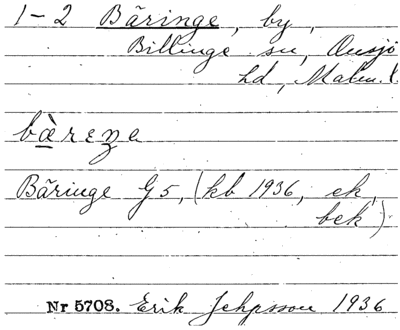 1-2 Bäringe, by,
Billinge sn, Onsjö
hd, Malm. l.
bæ̀reŋa
Bäringe G5, (kb 1936, ek,
bek)
Nr 5708. Erik Jepsson 1936